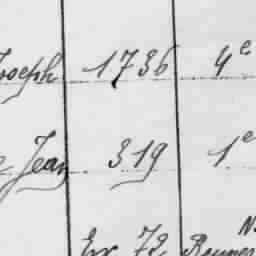 Joseph 1736 4e
Jean 319 1e
Ex 72